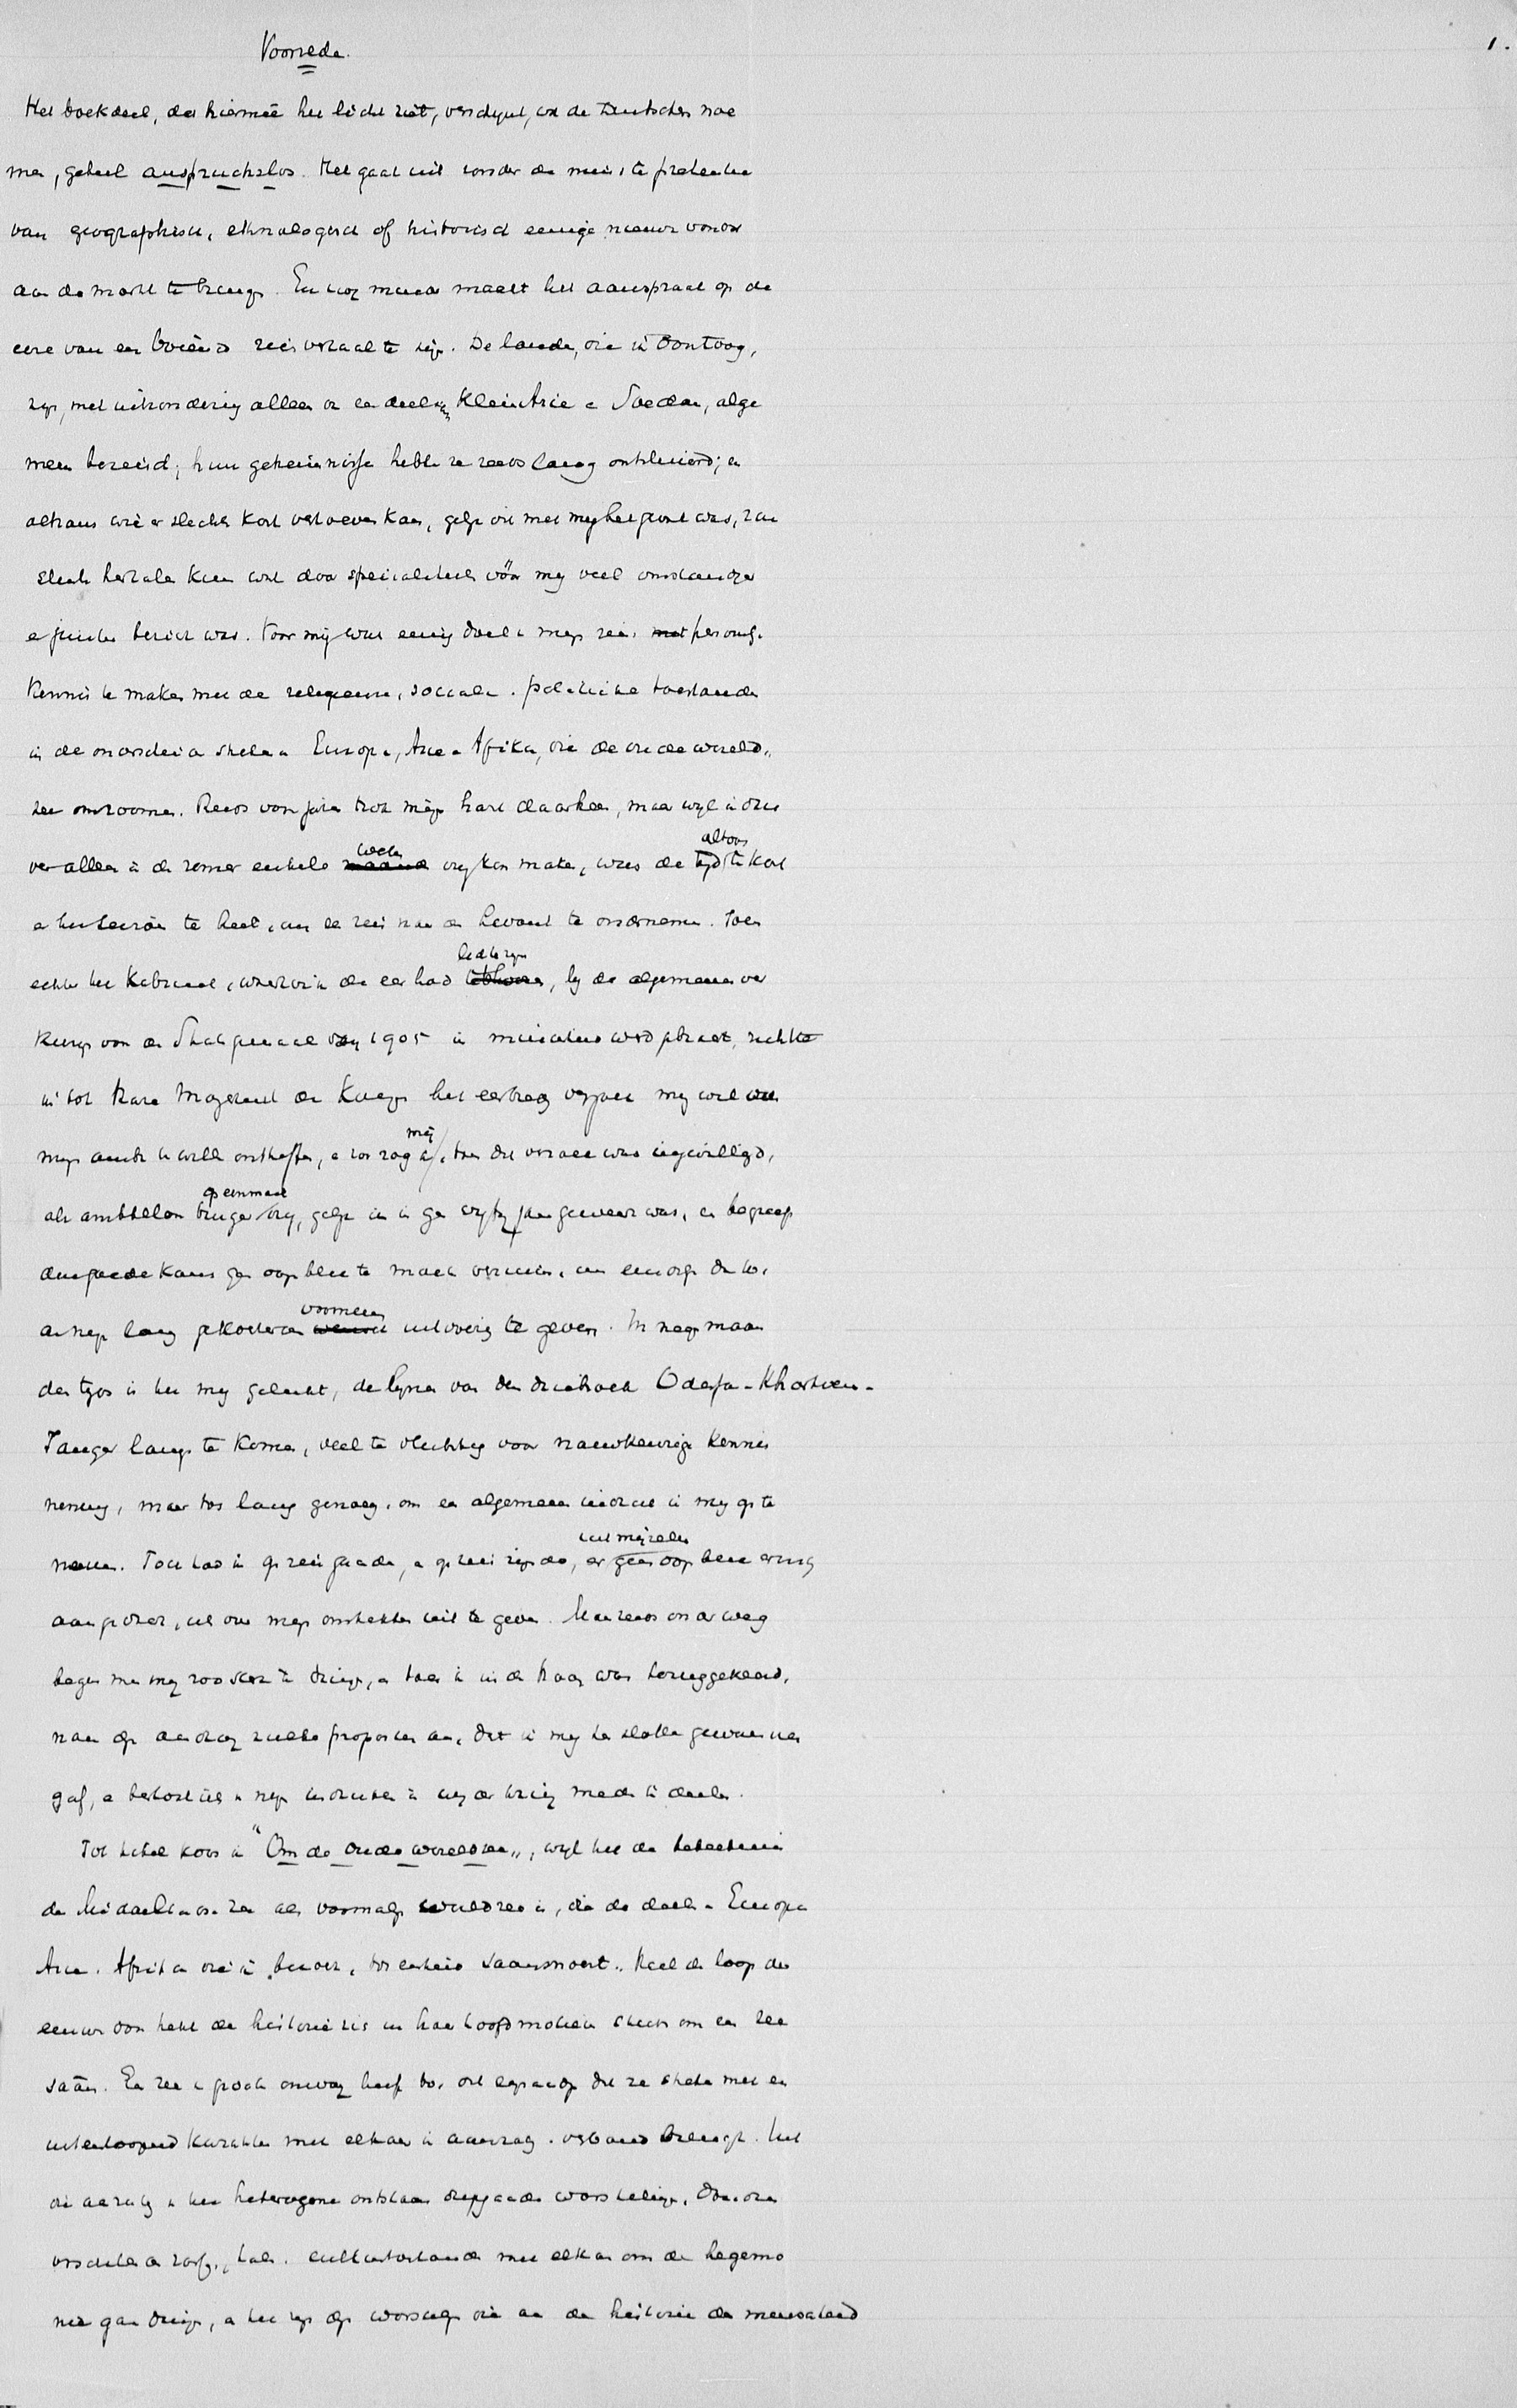 1.
Voorrede.
Het boekdeel, dat hiermeê het licht ziet, verschijnt, wat de Duitschers noe
men, geheel anspruchslos. Het gaat uit zonder de minste pretentie
van geographisch, ethnologisch of historisch eenige nieuwe vondst
aan de markt te brengen. En nog minder maakt het aanspraak op de
eere van een boeiend reisverhaal te zijn. De landen, die ik doortoog,
zijn, met uitzondering alleen van een deel van Klein Azie en Soedan, alge
meen bereisd; hun geheimnissen hebben ze reeds lang ontsluierd; en
althans wie er slechts kort vertoeven kan, gelijk dit met mij het geval was, zou
slechts herhalen kunnen wat door specialiteiten vóór mij veel omstandiger
en juister bericht was. Voor mij was eenig doel van mijn reis, persoonlijk
kennis te maken met de religieuse, sociale en politieke toestanden
in de onderscheidene streken van Europa, Azie en Afrika, die de oude wereld-
zee omzoomen. Reeds voor jaren trok mijn hart daarheen, maar wijl ik dus
ver alleen in de zomer enkele weken vrij kon maken, was de tijd altoos te kort
en het seizoen te heet, om de reis naar de Levant te ondernemen. Toen
echter het Kabinet, waarvan ik de eer had lid te zijn, bij de algemeene ver
kiezingen van de Staten Generaal van 1905 in minderheid werd gebracht, richtte
ik tot Hare Majesteit de Koningin het eerbiedig verzoek mij wel van
mijn ambt te willen ontheffen, en zoo zag ik mij, toen dit verzoek was ingewilligd,
als ambteloos burger opeenmaal vrij, gelijk ik in geen vijftig jaren geweest was, en begreep
die goede kans geen oogenblik te moeten verzuimen, om eindelijk dan toch
aan mijn lang gekoesterd voornemen uitvoering te geven. In negen maan
den tijds is het mij gelukt, de lijnen van den driehoek Odessa-Khartoem-
Tanger langs te komen, veel te vluchtig voor nauwkeurige kennis
neming, maar toch lang genoeg, om een algemeenen indruk in mij op te
nemen. Toch had ik op reis gaande, en op reis zijnde, er uit mijzelven geen oogenblik ernstig
aan gedacht, iets over mijn omtrekken uit te geven. Maar reeds onderweg
begon men mij zoo sterk te dringen, en toen ik in den Haag was teruggekeerd,
nam die aandrang zulke proporties aan, dat ik mij ten slotte gewonnen
gaf, en besloot iets van mijn indrukken in wijder kring mede te deelen.
Tot titel koos ik "Om de oude wereldzee", wijl het de beteekenis
der Middellandsche Zee als voormalige wereldzee is, die de deelen van Europa
Azie en Afrika die ik bezocht, tot eenheid saamsnoert. Heel de loop der
eeuwen door heeft de historie zich in haar hoofdmotieven steeds om een zee
saam. Een zee van groote omvang heeft toch dit eigenaardige dat ze streken met een
uiteenloopend karakter met elkaar in aanraking en verband brengt. Uit
die aanraking van het heterogene ontstaan diepgaande worstelingen, doordien
verschillende rassen, talen en cultuurtoestanden met elkaar om de hegemo
nie gaan dingen, en het zijn die worstelingen die aan de historie der menschheid